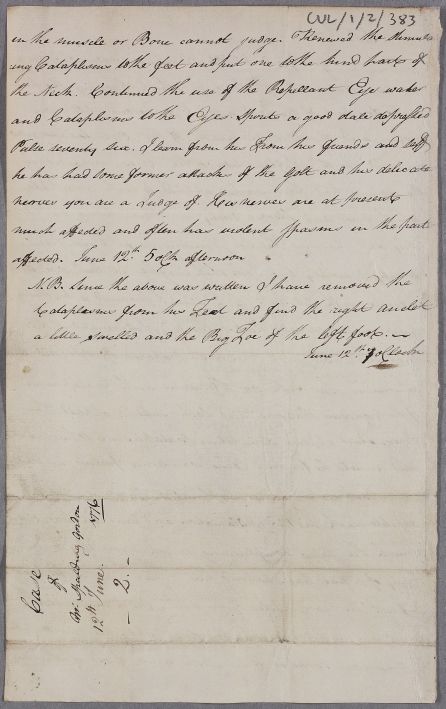 CUL/1/2/383
in the muscle or Bone cannot judge. I renewed the Stimula
ing Cataplasms to the feet and put one to the hind part of
the Neck. Continued the use of the Repellant Eye water
and Cataplasm to the Eye Sprits a good dale depressed
Pulse seventy six. I learn from his from his friends and self
he has had some former attacks of the Golt and his delicate
nerves you are a Judge of. His nerves are at present
much affected and often has violent spasms in the part
affected. June 12th 5 oClk afternoon
N.B. Since the above was written I have removed the
Cataplasms from his Feet and find the right anclet
a little swelled and the Big Toe of the left foot. —
June 12th 7 oClock
Case
of
Mr. Spalding Gordon
12th June. 1776
— 2. —